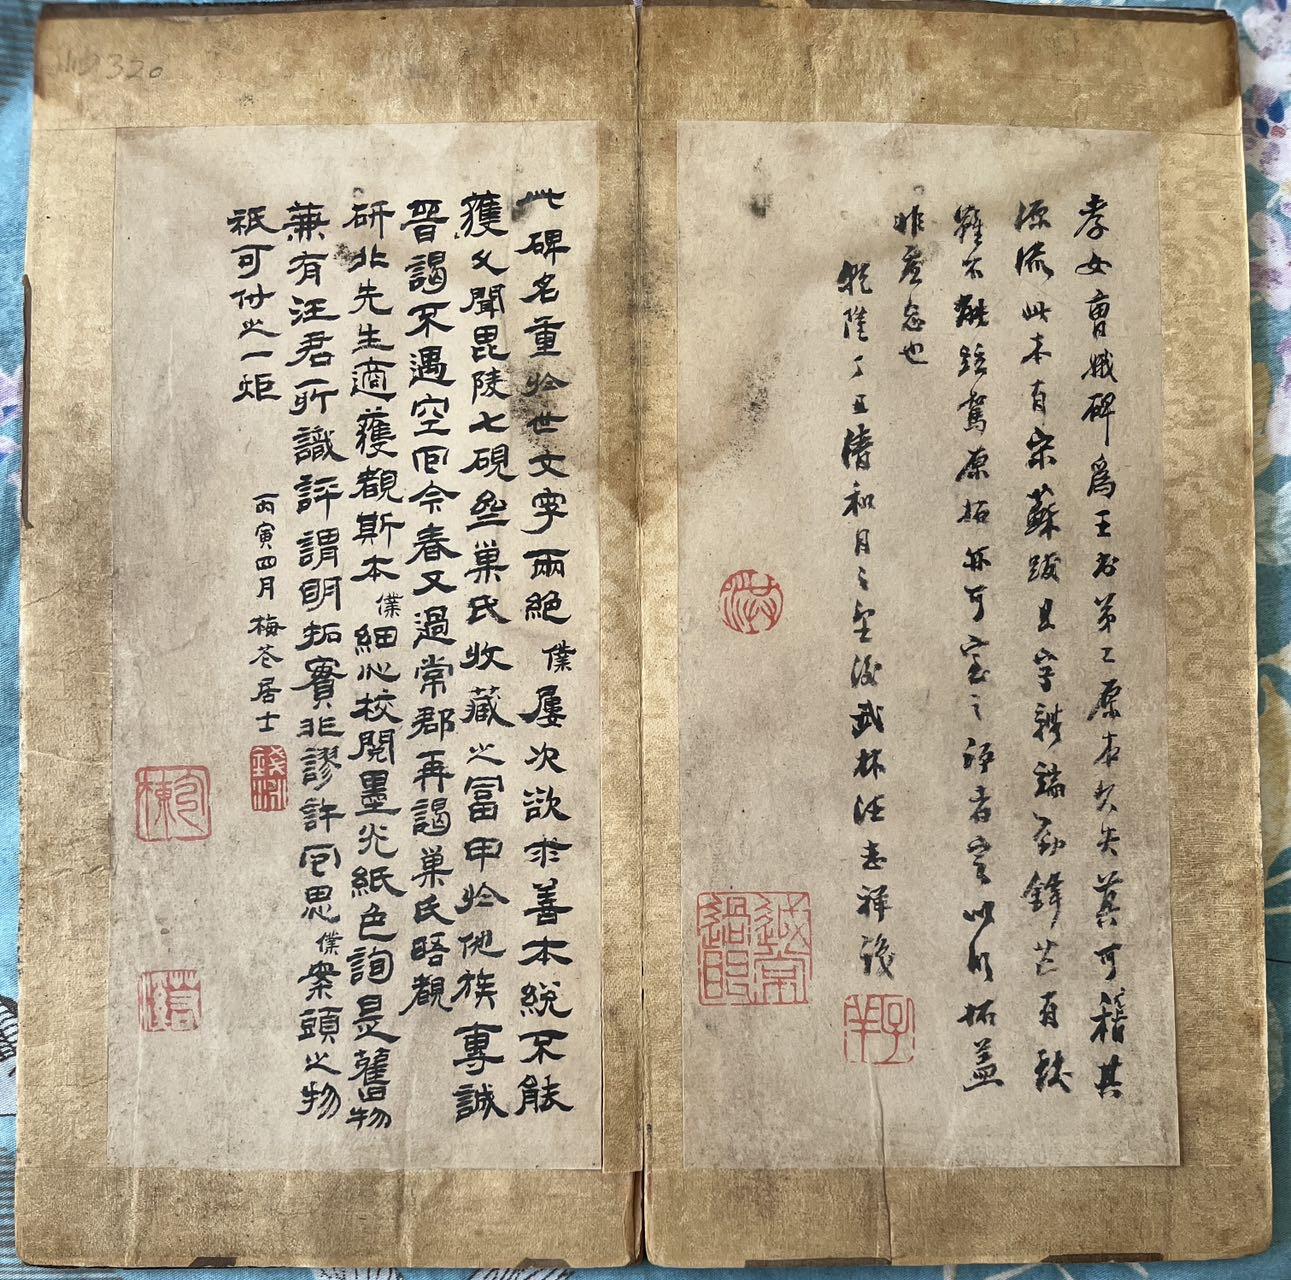 孝女曹娥碑爲王書第一原本久失莫可稽其
源流此本有宋蘇跋且字跡端勁鋒芒有銹
雖不能踪駕原拓亦可寶之評者定以明拓蓋
非虛忘也
乾隆丁丑清和月之望後武林汪志祥識
此碑名重於世文字兩絕僕屢次欲求善本總不能
獲久聞毘陵七硯巢氏收藏之富甲於他族專誠
晉謁不遇空回今春又過常郡再謁巢氏晤觀
研北先生適獲觀斯本僕細心校閱墨光紙色詢是舊物
兼有汪君所識評謂明拓實非謬許回思僕案頭之物
祇可付之一炬
丙寅四月 梅苍居士
320